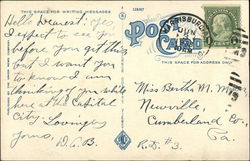 THIS SPACE FOR WRITING MESSAGES
Hello Dearest: Yes
I expect to see you
before you get this
but I want you
to know I am
thinking of you while
here at the Capital
City. Lovingly
Yours,
D.C.B.
POST CARD
THIS SPACE FOR ADDRESS ONLY
HARRISBURG
JUN
Miss Bertha M. Moor
Newville,
Cumberland Co.,
Pa.
R.D. #3.